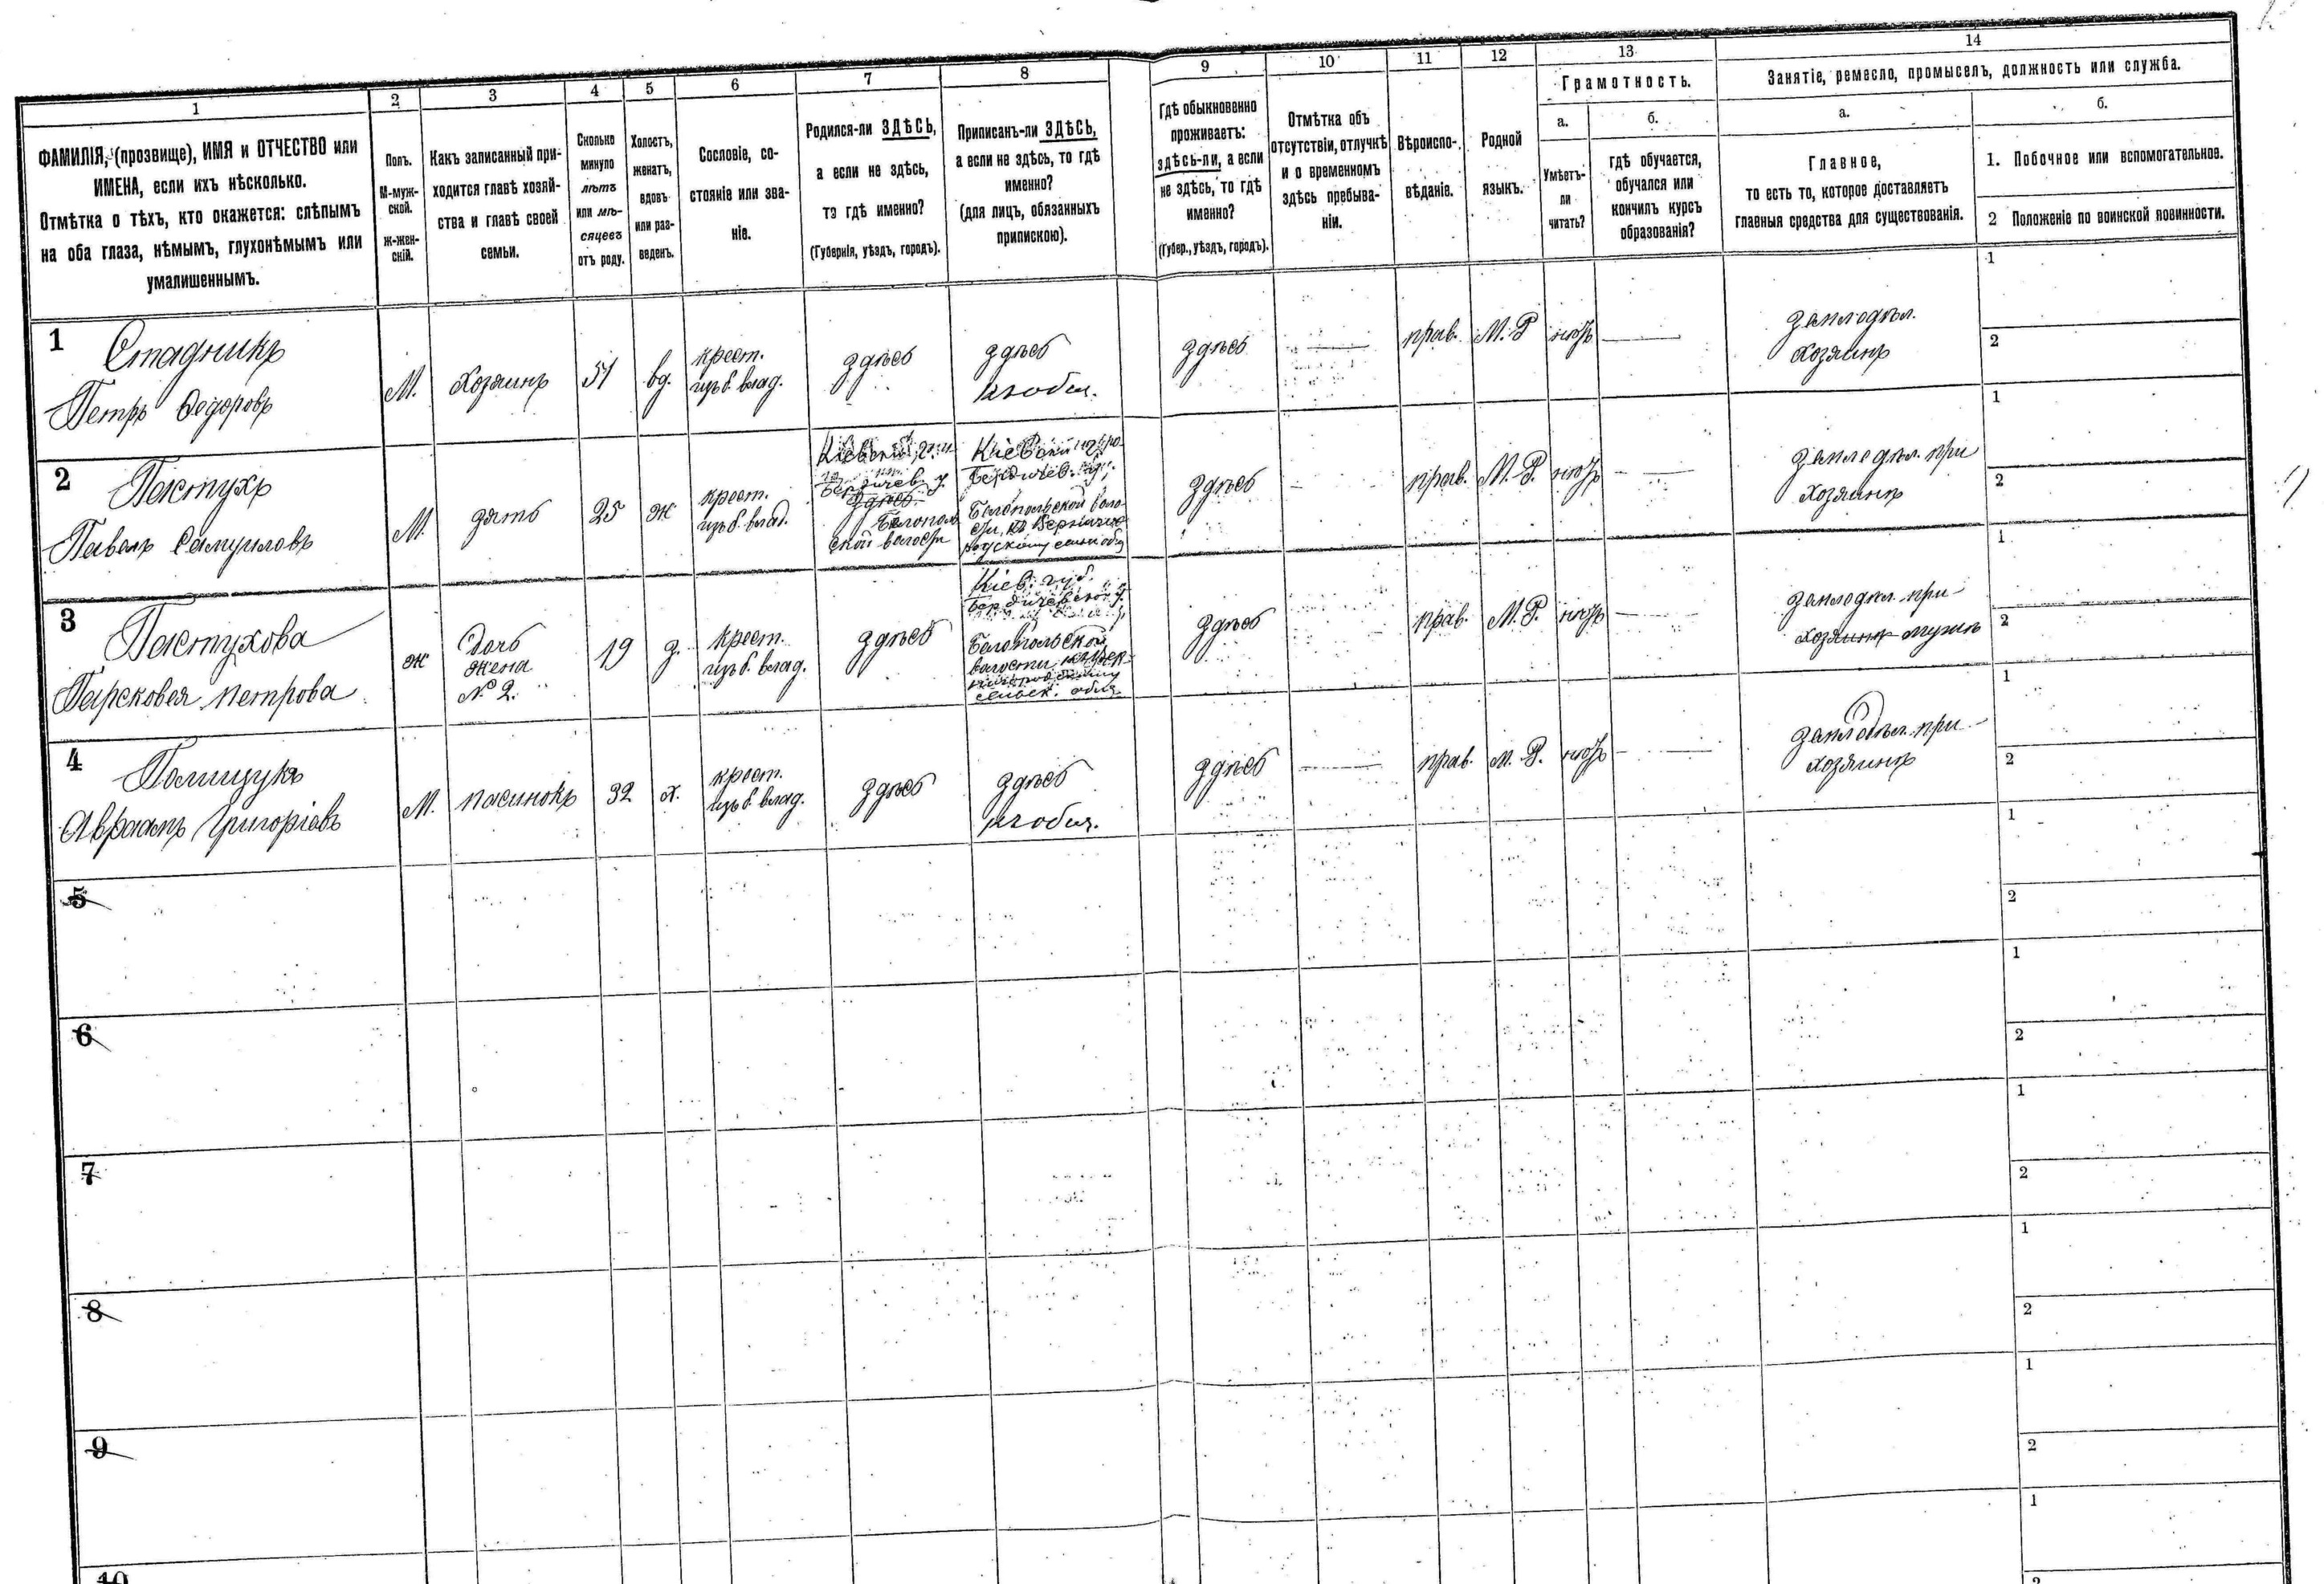 1
2
3
4
5
6
7
8
9
10
11
12
13
14
ФАМИЛІЯ, (прозвище), ИМЯ и ОТЧЕСТВО или
ИМЕНА, если ихъ нѣсколько.
Отмѣтка о тѣхъ, кто окажется: слѣпымъ
на оба глаза, нѣмымъ, глухонѣмымъ или
умалишеннымъ.
Полъ.
М-муж-
ской.
Ж-жен-
скій.
Какъ записанный при-
ходится главѣ хозяй-
ства и главѣ своей
семьи.
Сколько
минуло
лѣтъ
или мѣ-
сяцевъ
отъ роду.
Холостъ,
женатъ,
вдовъ
или раз-
веденъ.
Сословіе, со-
стояніе или зва-
ніе.
Родился-ли ЗДѢСЬ,
а если не здѣсь,
то гдѣ именно?
(Губернія, уѣздъ, городъ).
Приписанъ-ли ЗДѢСЬ,
а если не здѣсь, то гдѣ
именно?
(для лицъ, обязанныхъ
припискою).
Гдѣ обыкновенно
проживаетъ:
здѣсь-ли, а если
не здѣсь, то гдѣ
именно?
(Губер., уѣздъ, городъ).
Отмѣтка объ
отсутствіи, отлучкѣ
и о временномъ
здѣсь пребыва-
ніи.
Вѣроиспо-
вѣданіе.
Родной
языкъ.
Грамотность.
а.
Умѣетъ-
ли
читать?
б.
гдѣ обучается,
обучался или
кончилъ курсъ
образованія?
Занятіе, ремесло, промыселъ, должность или служба.
а.
Главное,
то есть то, которое доставляетъ
главныя средства для существованія.
б.
1. Побочное или вспомогательное.
2 Положеніе по воинской повинности.
1
Стадникъ
Петръ Федоровъ
М.
Хозяинъ
51
вд.
крест.
изъ б. влад.
здѣсь
здѣсь
к. с. общ.
здѣсь
прав.
М. Р
нѣтъ
земледѣл.
Хозяинъ
1
2
2
Пастухъ
Павелъ Самуиловъ
М.
зять
25
ж
крест.
изъ б. влад.
Бердичев. у.
здѣсь
Бѣлополь
ской волости
Бердичев. у.
Бѣлопольской воло-
здѣсь
прав.
М. Р.
нѣтъ
земледѣл. при
Хозяинѣ
1
2
3
Пастухова
Парсковея Петрова
ж
Дочь
Жена
№ 2.
19
з.
крест.
изъ б. влад.
здѣсь
Кіев. губ.
Бердичевской у.
Бѣлопольской
волости
сельск. общ.
здѣсь
прав.
М. Р.
нѣтъ
земледѣл. при
Хозяинѣ мужѣ
1
2
4
Полищукъ
Авраамъ Григоріевъ
М.
пасынокъ
32
х.
крест.
изъ б. влад.
здѣсь
здѣсь
к. с. общ.
здѣсь
прав.
М. Р.
нѣтъ
земледѣл. при
хозяинѣ
1
2
5
1
2
6
1
2
7
1
2
8
1
2
9
1
2
10
1
2